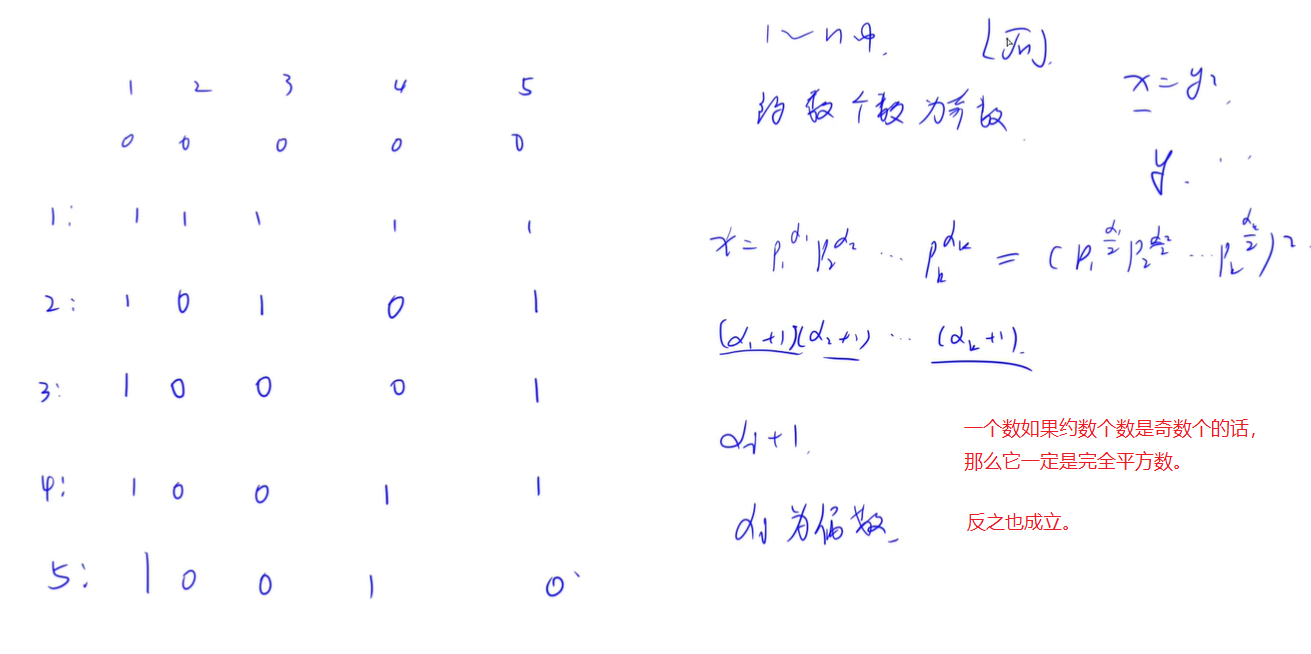 1 2 3 4 5
0 0 0 0 0
1: 1 1 1 1 1
2: 1 0 1 0 1
3: 1 0 0 0 1
4: 1 0 0 1 1
5: 1 0 0 1 0
1~n中. ⌊√n⌋.
约数个数为奇数
x=y².
y.
x=p₁^α₁ p₂^α₂ ... pₖ^αₖ = (p₁^(α₁/2) p₂^(α₂/2) ... pₖ^(αₖ/2))²
(α₁+1)(α₂+1) ... (αₖ+1).
αⱼ+1.
αⱼ为偶数.
一个数如果约数个数是奇数个的话，
那么它一定是完全平方数。
反之也成立。